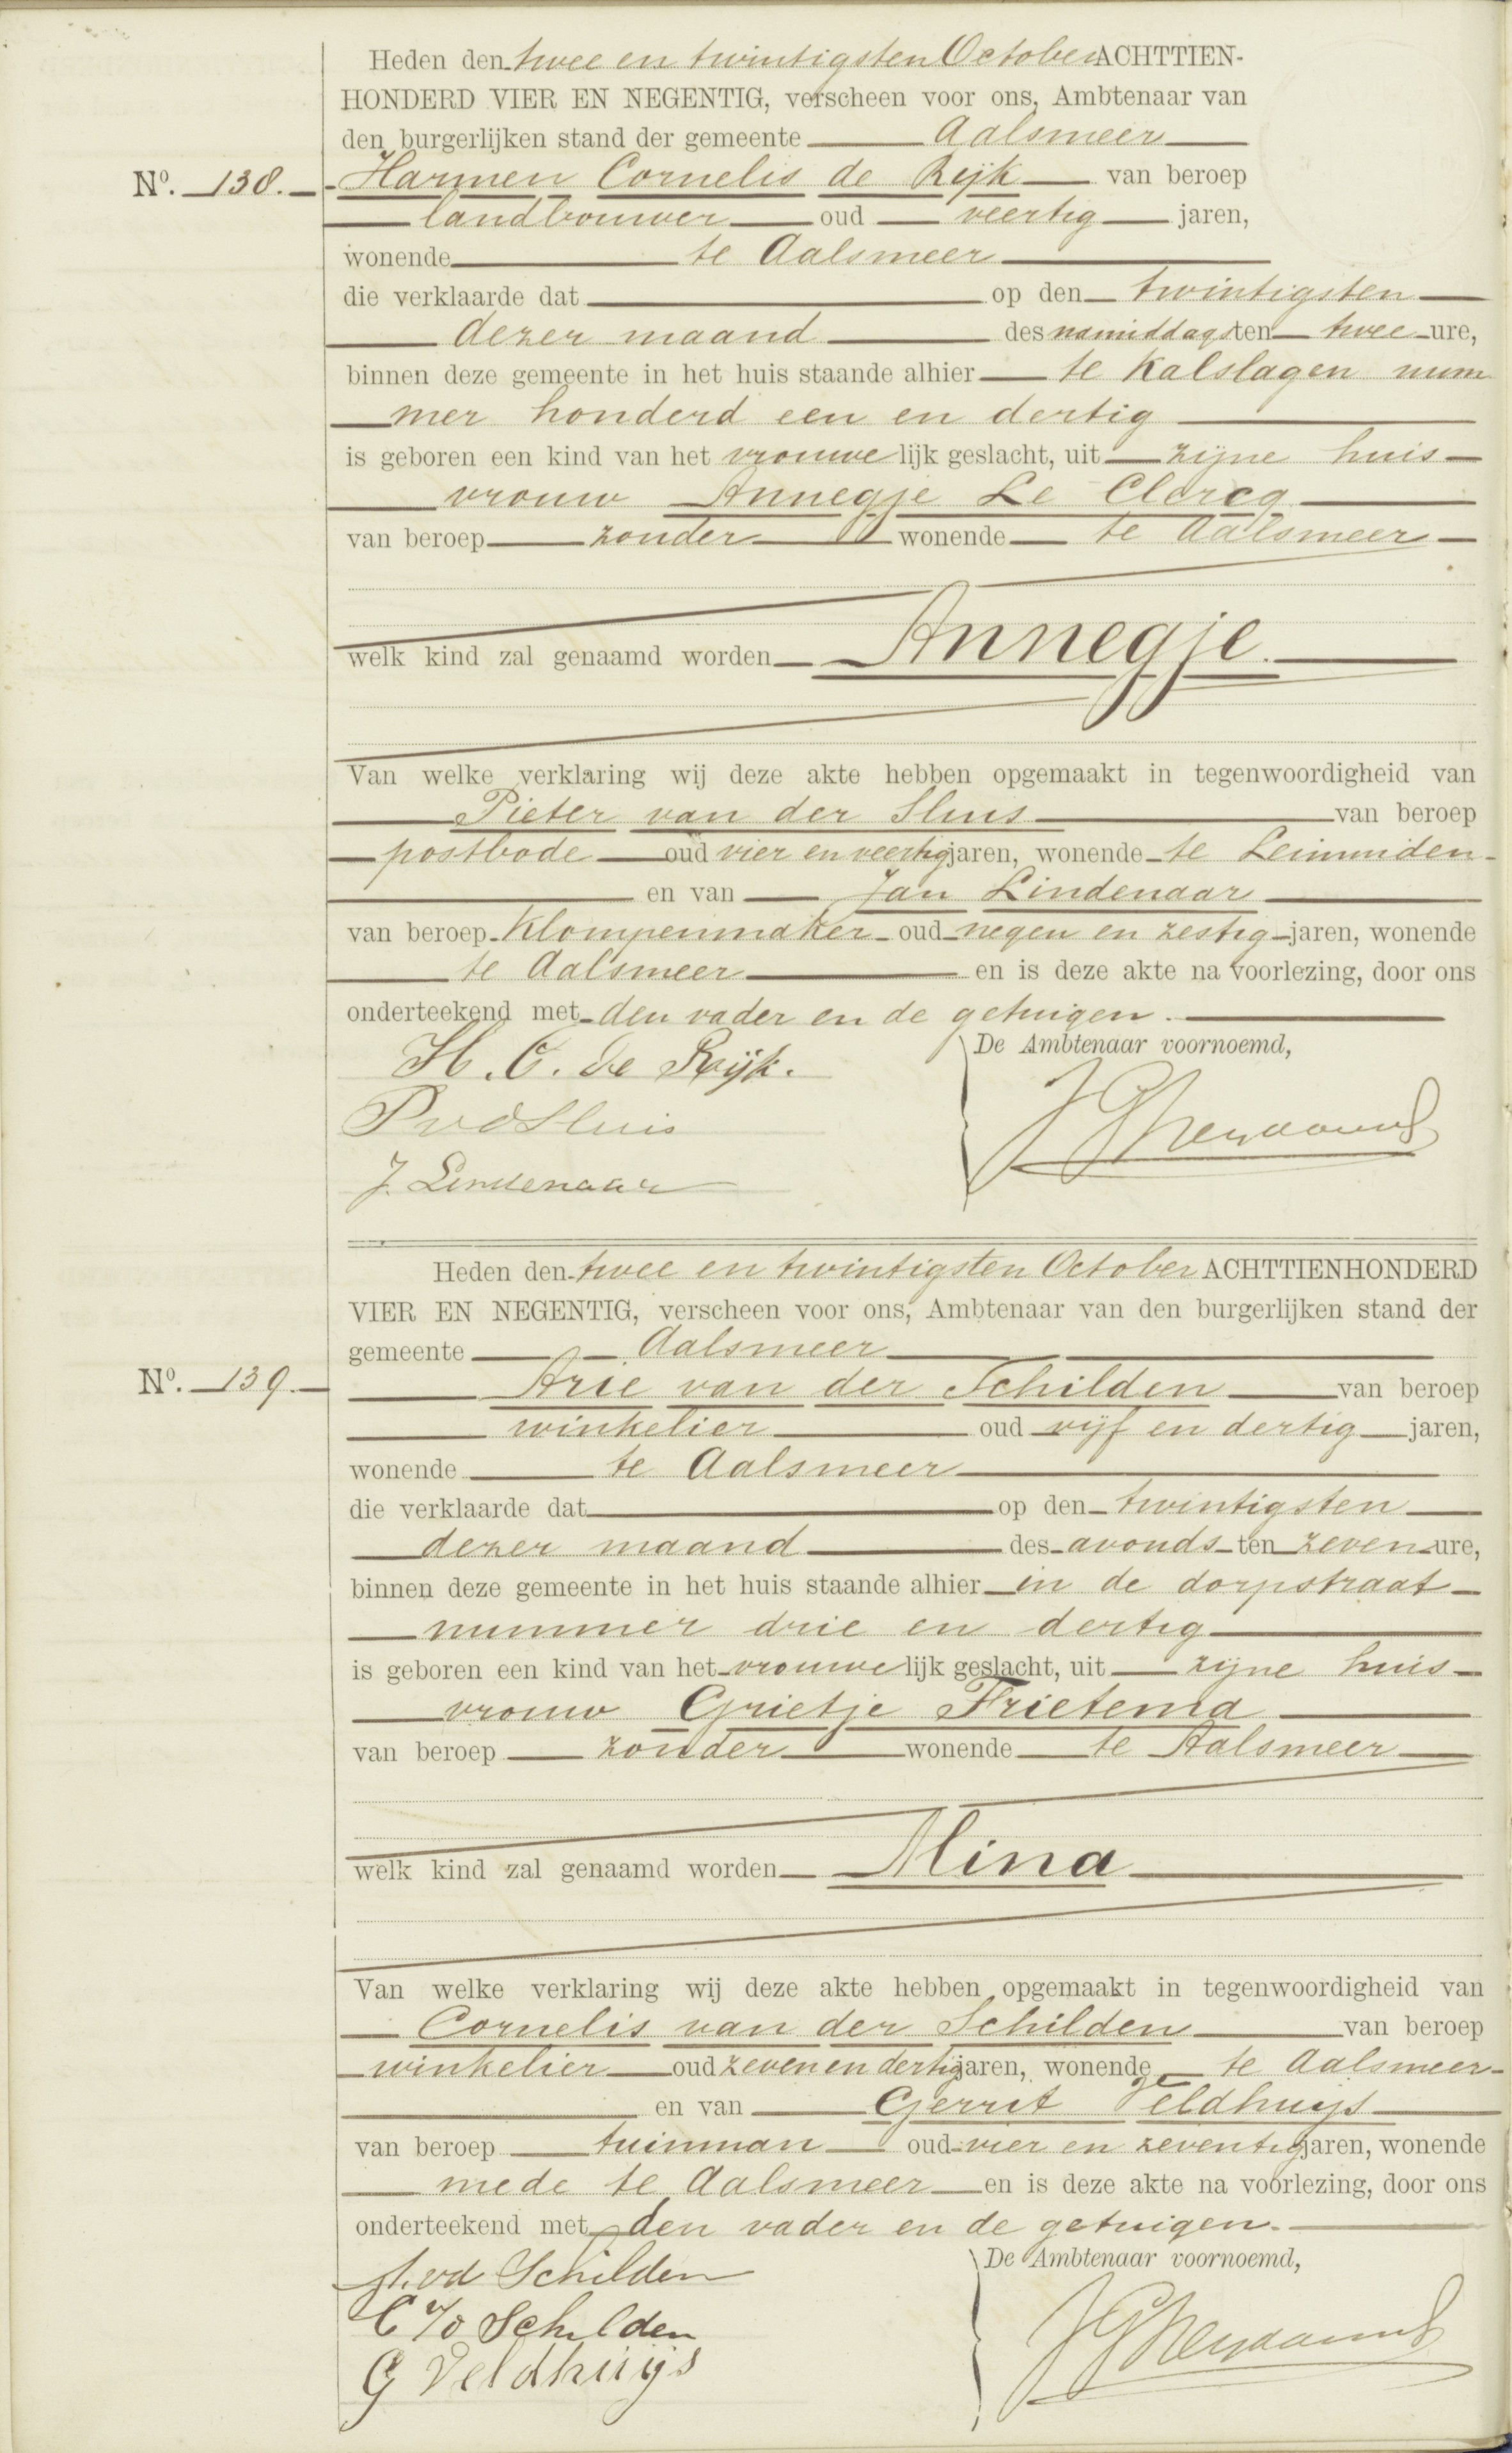 Heden den twee en twintigsten October ACHTTIEN-
HONDERD VIER EN NEGENTIG, verscheen voor ons, Ambtenaar van
den burgerlijken stand der gemeente Aalsmeer
No. 138. Harmen Cornelis de Rijk van beroep
landbouwer oud veertig jaren,
wonende te Aalsmeer
die verklaarde dat op den twintigsten
dezer maand des namiddags ten twee ure,
binnen deze gemeente in het huis staande alhier te Kalslagen num
mer honderd een en dertig
is geboren een kind van het vrouwelijk geslacht, uit zijne huis-
vrouw Annegje Le Clercq
van beroep zonder wonende te Aalsmeer
welk kind zal genaamd worden Annegje.
Van welke verklaring wij deze akte hebben opgemaakt in tegenwoordigheid van
Pieter van der Sluis van beroep
postbode oud vier en veertig jaren, wonende te Leimuiden
en van Jan Lindenaar
van beroep Klompenmaker oud negen en zestig jaren, wonende
te Aalsmeer en is deze akte na voorlezing, door ons
onderteekend met den vader en de getuigen.
De Ambtenaar voornoemd,
H. C. de Rijk.
P vd Sluis
J. Lindenaar
Heden den twee en twintigsten October ACHTTIENHONDERD
VIER EN NEGENTIG, verscheen voor ons, Ambtenaar van den burgerlijken stand der
gemeente Aalsmeer
No. 139. Arie van der Schilden van beroep
winkelier oud vijf en dertig jaren,
wonende te Aalsmeer
die verklaarde dat op den twintigsten
dezer maand des avonds ten zeven ure,
binnen deze gemeente in het huis staande alhier in de dorpstraat
nummer drie en dertig
is geboren een kind van het vrouwelijk geslacht, uit zijne huis-
vrouw Grietje Frietema
van beroep zonder wonende te Aalsmeer
welk kind zal genaamd worden Alina
Van welke verklaring wij deze akte hebben opgemaakt in tegenwoordigheid van
Cornelis van der Schilden van beroep
winkelier oud zeven en dertig jaren, wonende te Aalsmeer
en van Gerrit Veldhuijs
van beroep tuinman oud vier en zeventig jaren, wonende
mede te Aalsmeer en is deze akte na voorlezing, door ons
onderteekend met den vader en de getuigen.
De Ambtenaar voornoemd,
A. vd Schilden
C v/d Schilden
G Veldhuijs